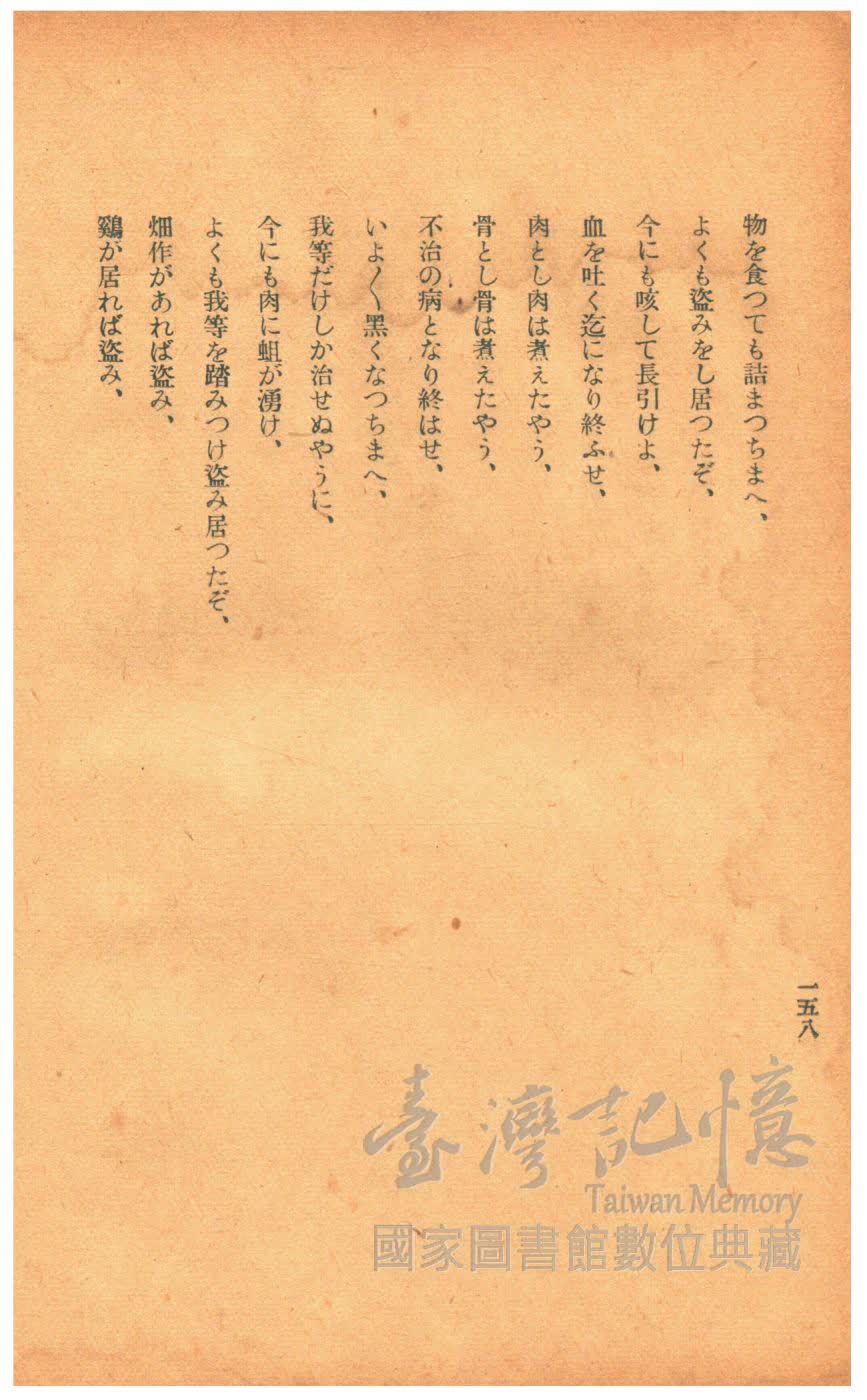 物を食つても詰まつちまへ、
よくも盜みをし居つたぞ、
今にも咳して長引けよ、
血を吐く迄になり終ふせ、
肉とし肉は煮えたやう、
骨とし骨は煮えたやう、
不治の病となり終はせ、
いよ〳〵黑くなつちまへ、
我等だけしか治せぬやうに、
今にも肉に蛆が湧け、
よくも我等を踏みつけ盜み居つたぞ、
畑作があれば盜み、
鷄が居れば盜み、
一五八
臺灣記憶
Taiwan Memory
國家圖書館數位典藏